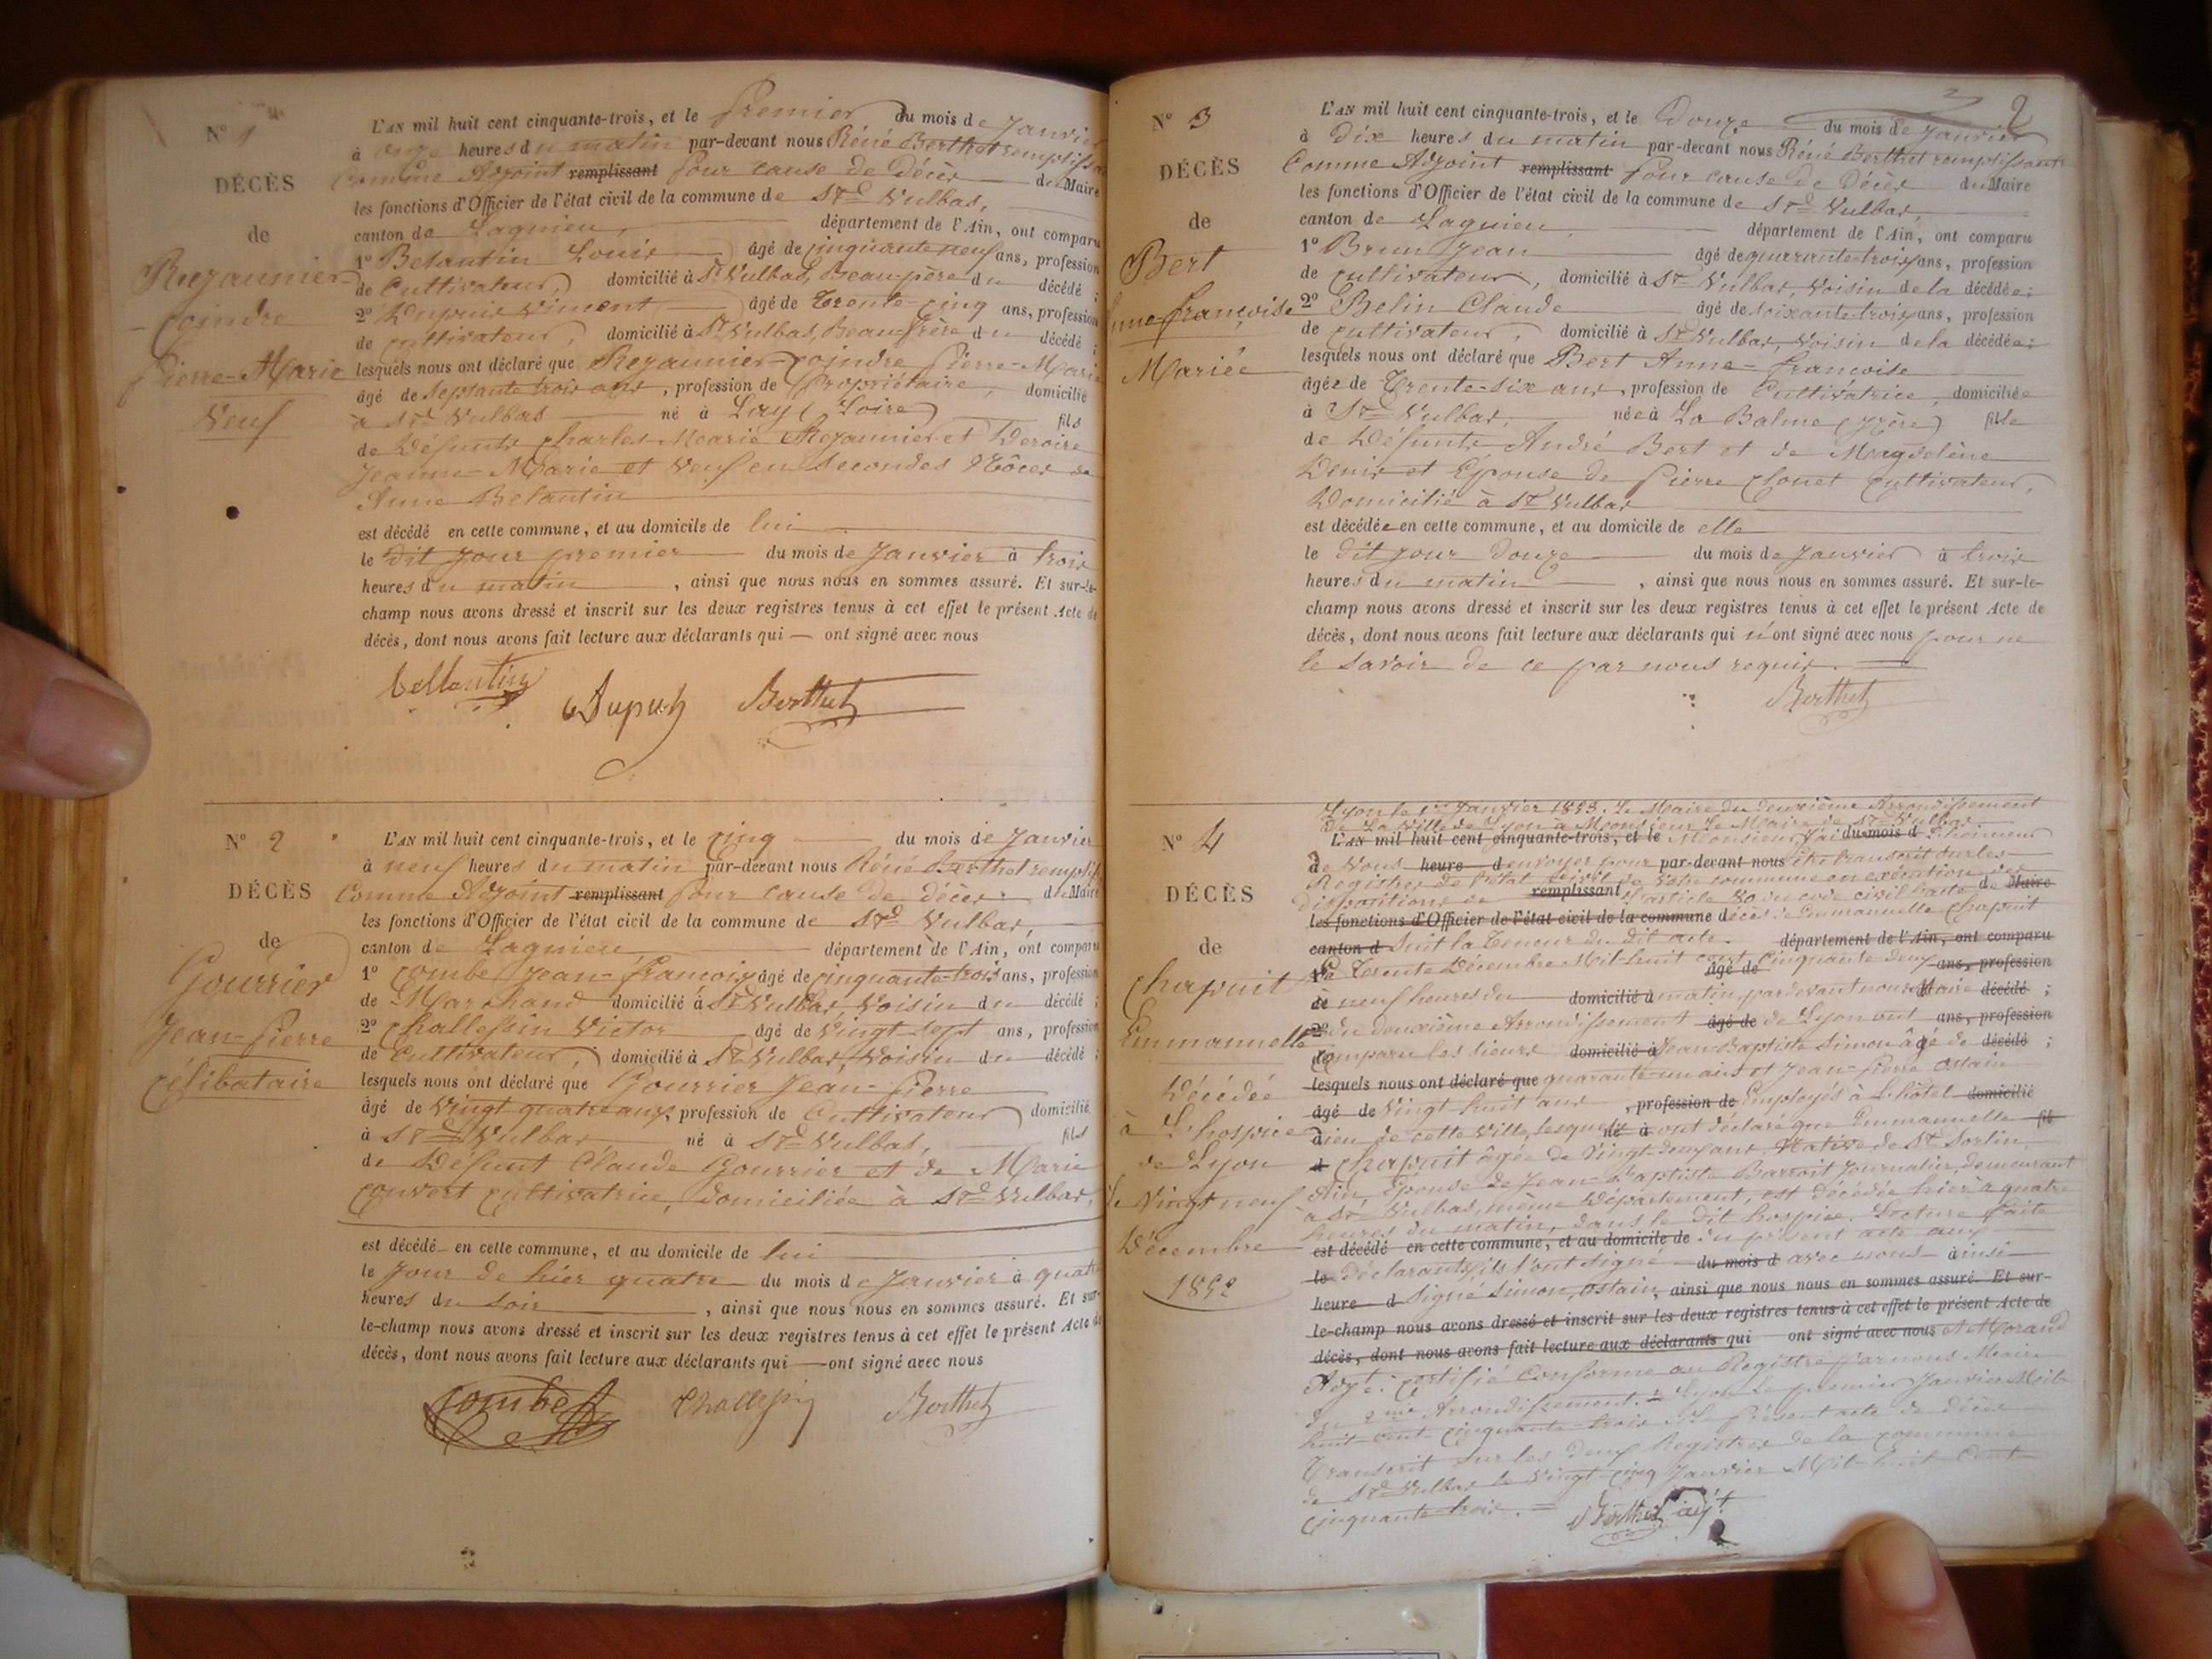 N° 1
DÉCÈS
de
Rezaunier-
Coindre
Pierre-Marie
Veuf
L'AN mil huit cent cinquante-trois, et le premier du mois de Janvier
à onze heures du matin par-devant nous Réné Berthet remplissant
Comme Adjoint remplissant pour cause de Décès du Maire
les fonctions d'Officier de l'état civil de la commune de St Vulbas,
canton de Lagnieu, département de l'Ain, ont comparu
1° Belantin Louis âgé de cinquante-neuf ans, profession
de Cultivateur, domicilié à St Vulbas, Beau-père du décédé ;
2° Dupuis Vincent âgé de Trente-cinq ans, profession
de cultivateur, domicilié à St Vulbas, Beau-frère du décédé ;
lesquels nous ont déclaré que Rezaunier-Coindre Pierre-Marie
âgé de septante trois ans, profession de Propriétaire, domicilié
à St Vulbas né à Lay (Loire) fils
de Défunts Charles-Marie Rezaunier et Deroire
Jeanne-Marie et Veuf en secondes Nôces de
Anne Belantin
est décédé en cette commune, et au domicile de lui
le dit jour premier du mois de Janvier à trois
heures du matin, ainsi que nous nous en sommes assuré. Et sur-le-
champ nous avons dressé et inscrit sur les deux registres tenus à cet effet le présent Acte de
décès, dont nous avons fait lecture aux déclarants qui — ont signé avec nous
Bellantin Dupuis Berthet
N° 2
DÉCÈS
de
Gourrier
Jean-Pierre
célibataire
L'AN mil huit cent cinquante-trois, et le cinq du mois de Janvier
à neuf heures du matin par-devant nous Réné Berthet rempliss
Comme Adjoint remplissant pour cause de décès du Maire
les fonctions d'Officier de l'état civil de la commune de St Vulbas,
canton de Lagnieu département de l'Ain, ont comparu
1° Combe Jean-François âgé de cinquante-trois ans, profession
de Marchand domicilié à St Vulbas, Voisin du décédé ;
2° Challessin Victor âgé de Vingt sept ans, profession
de Cultivateur, domicilié à St Vulbas, Voisin du décédé ;
lesquels nous ont déclaré que Gourrier Jean-Pierre
âgé de Vingt quatre ans, profession de Cultivateur domicilié
à St Vulbas, né à St Vulbas, fils
de Défunt Claude Gourrier et de Marie
Convert cultivatrice, domiciliée à St Vulbas,
est décédé en cette commune, et au domicile de lui
le jour de hier quatre du mois de Janvier à quatre
heures du soir, ainsi que nous nous en sommes assuré. Et sur-
le-champ nous avons dressé et inscrit sur les deux registres tenus à cet effet le présent Acte de
décès, dont nous avons fait lecture aux déclarants qui — ont signé avec nous
Combe Challessin Berthet
2
N° 3
DÉCÈS
de
Bert
Anne-Françoise
Mariée
L'AN mil huit cent cinquante-trois, et le Douze du mois de Janvier
à Dix heures du matin par-devant nous Réné Berthet remplissant
Comme Adjoint remplissant pour cause de Décès du Maire
les fonctions d'Officier de l'état civil de la commune de St Vulbas,
canton de Lagnieu, département de l'Ain, ont comparu
1° Brun Jean âgé de quarante-trois ans, profession
de cultivateur, domicilié à St Vulbas, Voisin de la décédée ;
2° Belin Claude âgé de soixante-trois ans, profession
de cultivateur, domicilié à St Vulbas, Voisin de la décédée ;
lesquels nous ont déclaré que Bert Anne-Françoise
âgée de Trente-six ans, profession de Cultivatrice, domiciliée
à St Vulbas, née à La Balme (Izère) fille
de Défunts André Bert et de Magdelène
Denis et Epouse de Pierre Clouet cultivateur,
Domicilié à St Vulbas
est décédée en cette commune, et au domicile de elle
le dit jour Douze du mois de Janvier à trois
heures du matin, ainsi que nous nous en sommes assuré. Et sur-le-
champ nous avons dressé et inscrit sur les deux registres tenus à cet effet le présent Acte de
décès, dont nous avons fait lecture aux déclarants qui n'ont signé avec nous pour ne
le savoir de ce par nous requis.
Berthet
N° 4
DÉCÈS
de
Chapuit
Emmanuelle
Décédée
à L'hospice
de Lyon
le Vingt neuf
Décembre
1852
Lyon le 1er Janvier 1853. Le Maire du Deuxième Arrondissement
de La Ville de Lyon à Monsieur Le Maire de St Vulbas
L'AN mil huit cent cinquante-trois, et le Monsieur, J'ai du mois d L'honneur
de Vous heure d envoyer pour par-devant nous être transcrit sur les
Registres de l'état civil de votre commune en exécution des
dispositions de remplissant l'article 80 du code civil l'acte de Maire
les fonctions d'Officier de l'état civil de la commune décès de Emmanuelle Chapuit
canton d Suit la Teneur du dit acte. département de l'Ain, ont comparu
1° Le Trente Décembre Mil huit cent âgé de Cinquante deux ans, profession
de à neuf heures du domicilié à matin, pardevant nous Maire décédé ;
2° du deuxième Arrondissement âgé de de Lyon ont ans, profession
de comparu les sieurs domicilié à Jean-Baptiste Simon âgé de décédé ;
lesquels nous ont déclaré que quarante-un ans et Jean-Pierre Ostain
âgé de Vingt huit ans, profession de Employés à L'hôtel domicilié
à dieu de cette Ville, lesquels né à ont déclaré que Emmanuelle fil
d Chapuit âgée de Vingt-deux ans, Native de St Sorlin,
Ain, Epouse de Jean-Baptiste Barroit Journalier, demeurant
à St Vulbas, même Département, est décédée hier à quatre
heures du matin, dans le dit hospice. Lecture faite
est décédé en cette commune, et au domicile de du présent acte aux
le déclarants, ils l'ont signé du mois d avec nous ainsi
heure d Signé Simon, Ostain, ainsi que nous nous en sommes assuré. Et sur-
le-champ nous avons dressé et inscrit sur les deux registres tenus à cet effet le présent Acte de
décès, dont nous avons fait lecture aux déclarants qui ont signé avec nous et Morand
Adjt. Certifié conforme au Registre par nous Maire
du 2me Arrondissement. Lyon le premier Janvier Mil
huit cent cinquante-trois. Le présent acte de décès
Transcrit sur les deux Registres de la commune
de St Vulbas le Vingt-cinq Janvier Mil-huit-Cent
cinquante-trois.
Berthet adjt